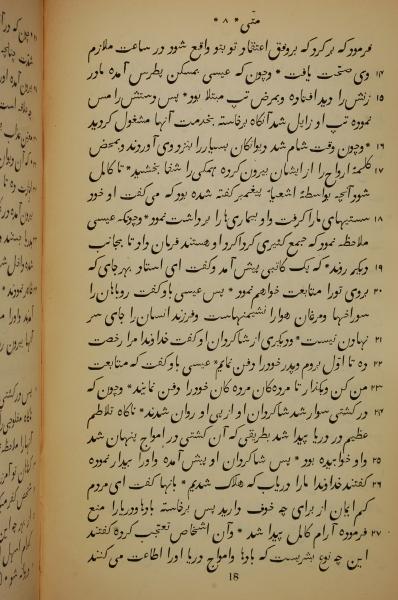 متی * ۸ *
فرمود که برگرد که بروفق اعتقاد تو بتو واقع شود در ساعت ملازم
۱۴ وی صحت یافت * وچون که عیسی بمسکن پطرس آمده مادر
۱۵ زنش را دید افتاده وبمرض تپ مبتلا بود * پس دستش را مس
نموده تپ او زایل شد آنگاه برخاسته بخدمت آنها مشغول گردید
۱۶ * وچون وقت شام شد دیوانکان بسیار را بنزد وی آوردند وبمحض
۱۷ کلمهٔ ارواح را از ایشان بیرون کرده همکی را شفا بخشید * تا کامل
شود آنچه بواسطهٔ اشعیاء پیغمبر کفته شده بود که می کفت او خود
۱۸ سستیهای ما را کرفت واو بیماری ها را برداشت نمود * وچونکه عیسی
ملاحظه نمود که جمع کثیری کرداکرد او هستند فرمان داد تا بجانب
۱۹ دیکر روند * که یک کاتبی پیش آمد وکفت ای استاد بهر جای که
۲۰ بروی تورا متابعت خواهم نمود * پس عیسی باو کفت روباهان را
سوراخها ومرغان هوا را نشیمنهاست وفرزند انسان را جای سر
۲۱ نهادن نیست * ودیکری از شاکردان او کفت خداوندا مرا رخصت
۲۲ ده تا اوّل بروم وپدر خود را دفن نمایم * عیسی باو کفت که متابعت
۲۳ من کن وبکذار تا مرده کان مرده کان خود را دفن نمایند * وچون که
۲۴ در کشتی سوار شد شاکردان او از پی او روان شدند * ناکاه تلاطم
عظیم در دریا پیدا شد بطریقی که آن کشتی در امواج پنهان شد
۲۵ واو خوابیده بود * پس شاکردان او پیش آمده واورا بیدار نموده
۲۶ کفتند خداوندا ما را دریاب که هلاک شدیم * بآنها کفت ای مردم
کم ایمان از برای چه خوف دارید پس برخاسته بادها ودریا را منع
۲۷ فرموده آرام کامل پیدا شد * وآن اشخاص تعجب کرده کفتند
این چه نوع بشریست که بادها وامواج دریا اورا اطاعت می کنند
18